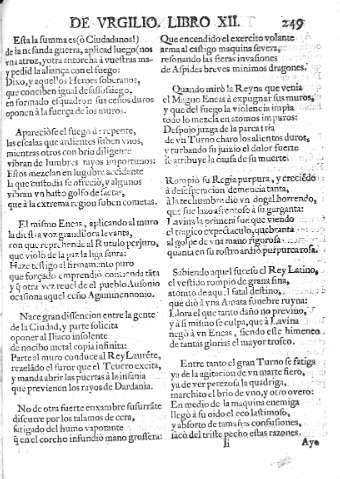 DE VIRGILIO. LIBRO XII. 249
Esta la summa es (ò Ciudadanos!)
de la nefanda guerra, aplicad luego (nos
vna atroz, y otra antorcha à vuestras ma-
y pedid la aliança con el fuego:
Dixo, y aquellos Heroes soberanos,
que conciben igual desassossiego,
en formado esquadron sus ceños duros
oponen à la fuerça de los muros.
Apareciòse el fuego de repente,
las escalas que ardientes suben vnos,
mientras otros con bria diligente
vibran de lumbres rayos importunos:
Estos mezclan en lugubre accidente
la que su odio se ofreciò, y algunos
vibran vn basto golfo de saetas,
que à la extrema region suben cometas.
El mismo Eneas, aplicando al muro
la diestra voz grandilocua levanta,
con que reprehende al Rutulo perjuro,
que violò de la paz la liga santa:
Haze testigo al firmamento puro
que forçado emprendiò contienda tãta
y q̃ otra vez reuel de el pueblo Ausonio
ocasiona aquel ceño Agamnennonio.
Nace gran dissencion entre la gente
de la Ciudad, y parte solicita
oponer al Iliaco insolente
de nocibo metal copia infinita:
Parte al muro conduce al Rey Laurẽte,
recelãdo el furor que el Teucro excita,
y manda abrir las puertas à la insania
que previenen los rayos de Dardania.
No de otra fuerte enxambre susurrãte
discurre por los talamos de cera,
fatigado del humo vapotante
q̃ en el corcho infundiò mano grossera:
Que encendido el exercito volante
arma al castigo maquina severa,
resonando las fieras invasiones
de Aspides breves minimos dragones.
Quando mirò la Reyna que venia
el Magno Eneas à expugnar sus muros,
y que del fuego la violencia impia
todo lo mezcla en atomos impuros:
Despojo juzga de la parca tria
de vn Turno charo los alientos duros,
y turbando su juizio el dolor fuerte
se atribuye la causa de su muerte.
Rompiò su Regia purpura, y creciẽdo
à desesperacion demencia tanta,
à la techumbre diò vn dogal horrendo,
que fue lazo afrentoso à su garganta:
Lavinia la primera fue que viendo
el tragico expectaculo, quebranta
al golpe de vna mano rigorosa
quanta en su rostro ardio purpurea rosa.
Sabiendo aquel sucesso el Rey Latino,
el vestido rompio de grana fina,
atonito de aquel fatal destino,
que diò à vna Amata funebre ruyna:
Llora el que tanto daño no previno,
y à si mismo se culpa, que à Lavina
negò à vn Eneas, siendo este himeneo
de tantas glorias el mayor trofeo.
Entre tanto el gran Turno se fatiga
ya de la agitacion de vn marte fiero,
ya de ver perezosa la quadriga,
marchito el brio de vno, y otro overo:
En medio de la maquina enemiga
llegò à su oido el eco lastimoso,
y absorto de tamañas confusiones,
sacò del triste pecho estas razones.
Ii Aye